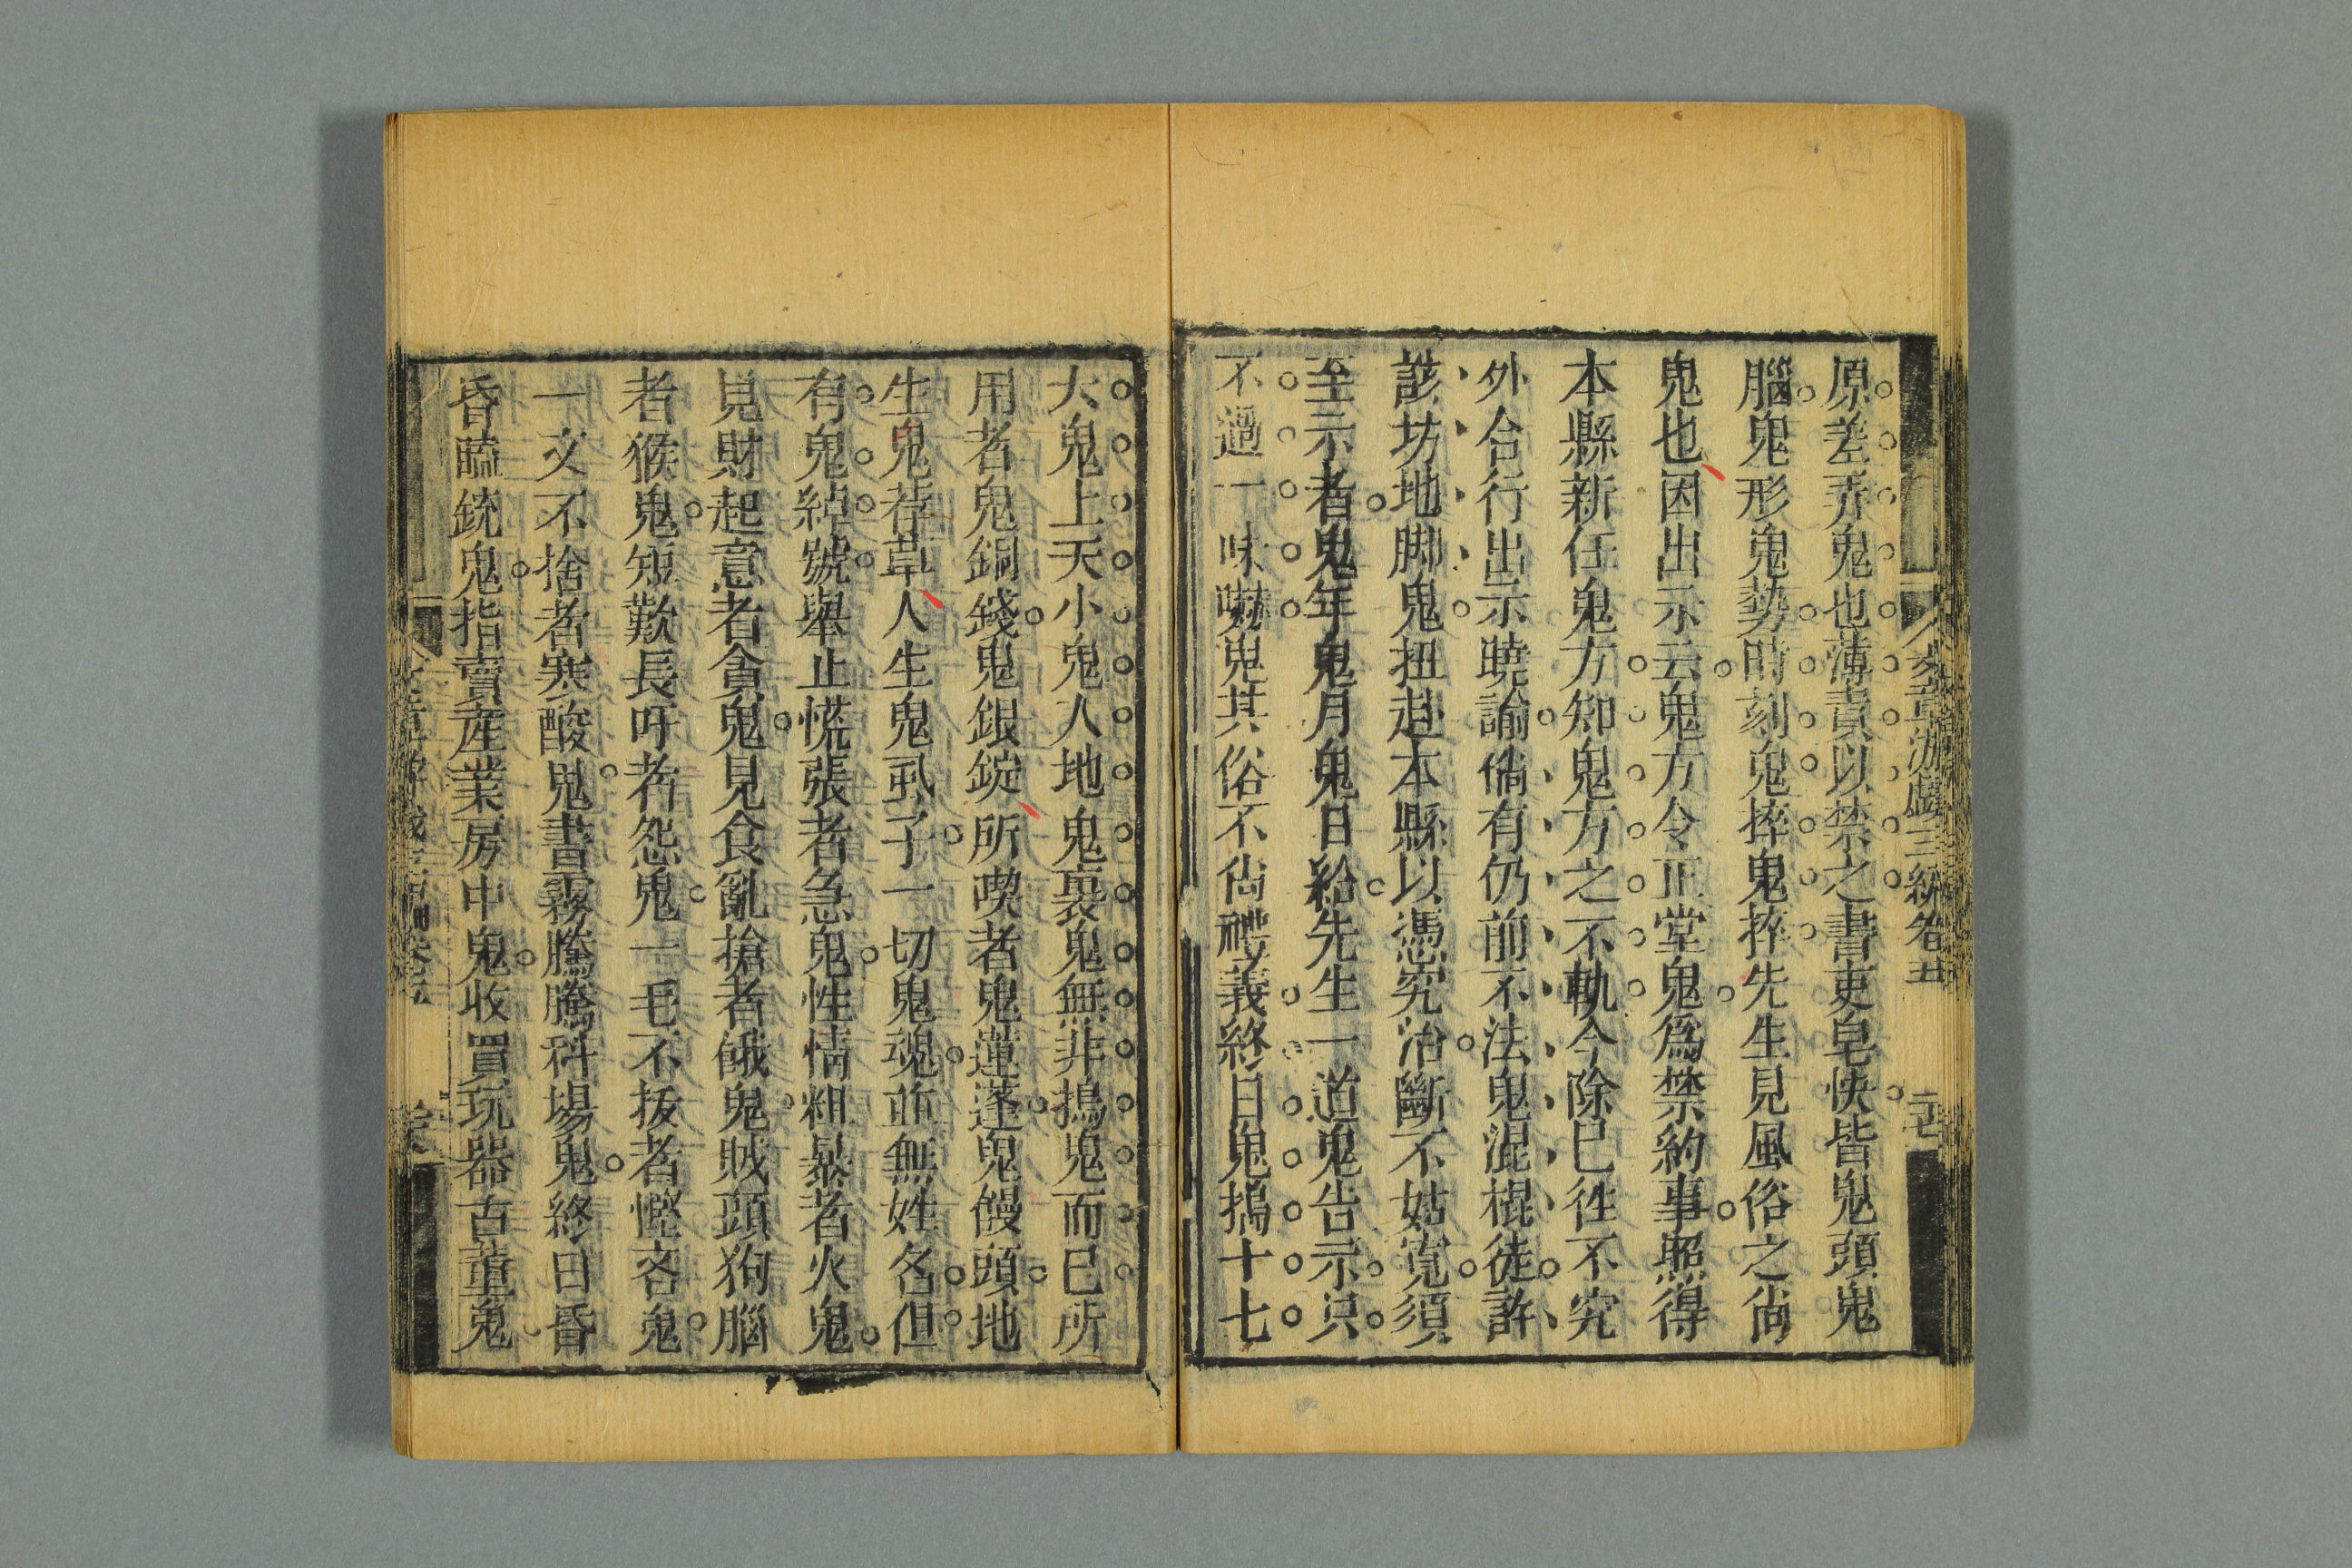 原差弄鬼也薄責以禁之書吏皂快皆鬼頭鬼
腦鬼形鬼勢時刻鬼捽鬼捽先生見風俗之尙
鬼也因出示云鬼方令正堂鬼爲禁約事照得
本縣新任鬼方知鬼方之不軌今除已徃不究
外合行出示曉諭倘有仍前不法鬼混棍徒許
該坊地脚鬼扭赴本縣以憑究治斷不姑寬須
至示者鬼年鬼月鬼日給先生一道鬼告示只
不過一味嚇鬼其俗不尙禮義終日鬼搗十七
大鬼上天小鬼入地鬼裹鬼無非搗鬼而已所
用者鬼銅錢鬼銀錠所喫者鬼蓮蓬鬼饅頭地
生鬼荐草人生鬼虱子一切鬼魂並無姓名但
有鬼綽號舉止慌張者急鬼性情粗暴者火鬼
見財起意者貪鬼見食亂搶者餓鬼賊頭狗腦
者猴鬼短歎長吁者怨鬼一毛不拔者慳吝鬼
一文不捨者寒酸鬼書霧騰騰科場鬼終日昏
昏瞌銃鬼指賣産業房中鬼收買玩器古董鬼
文章游戲三編卷五